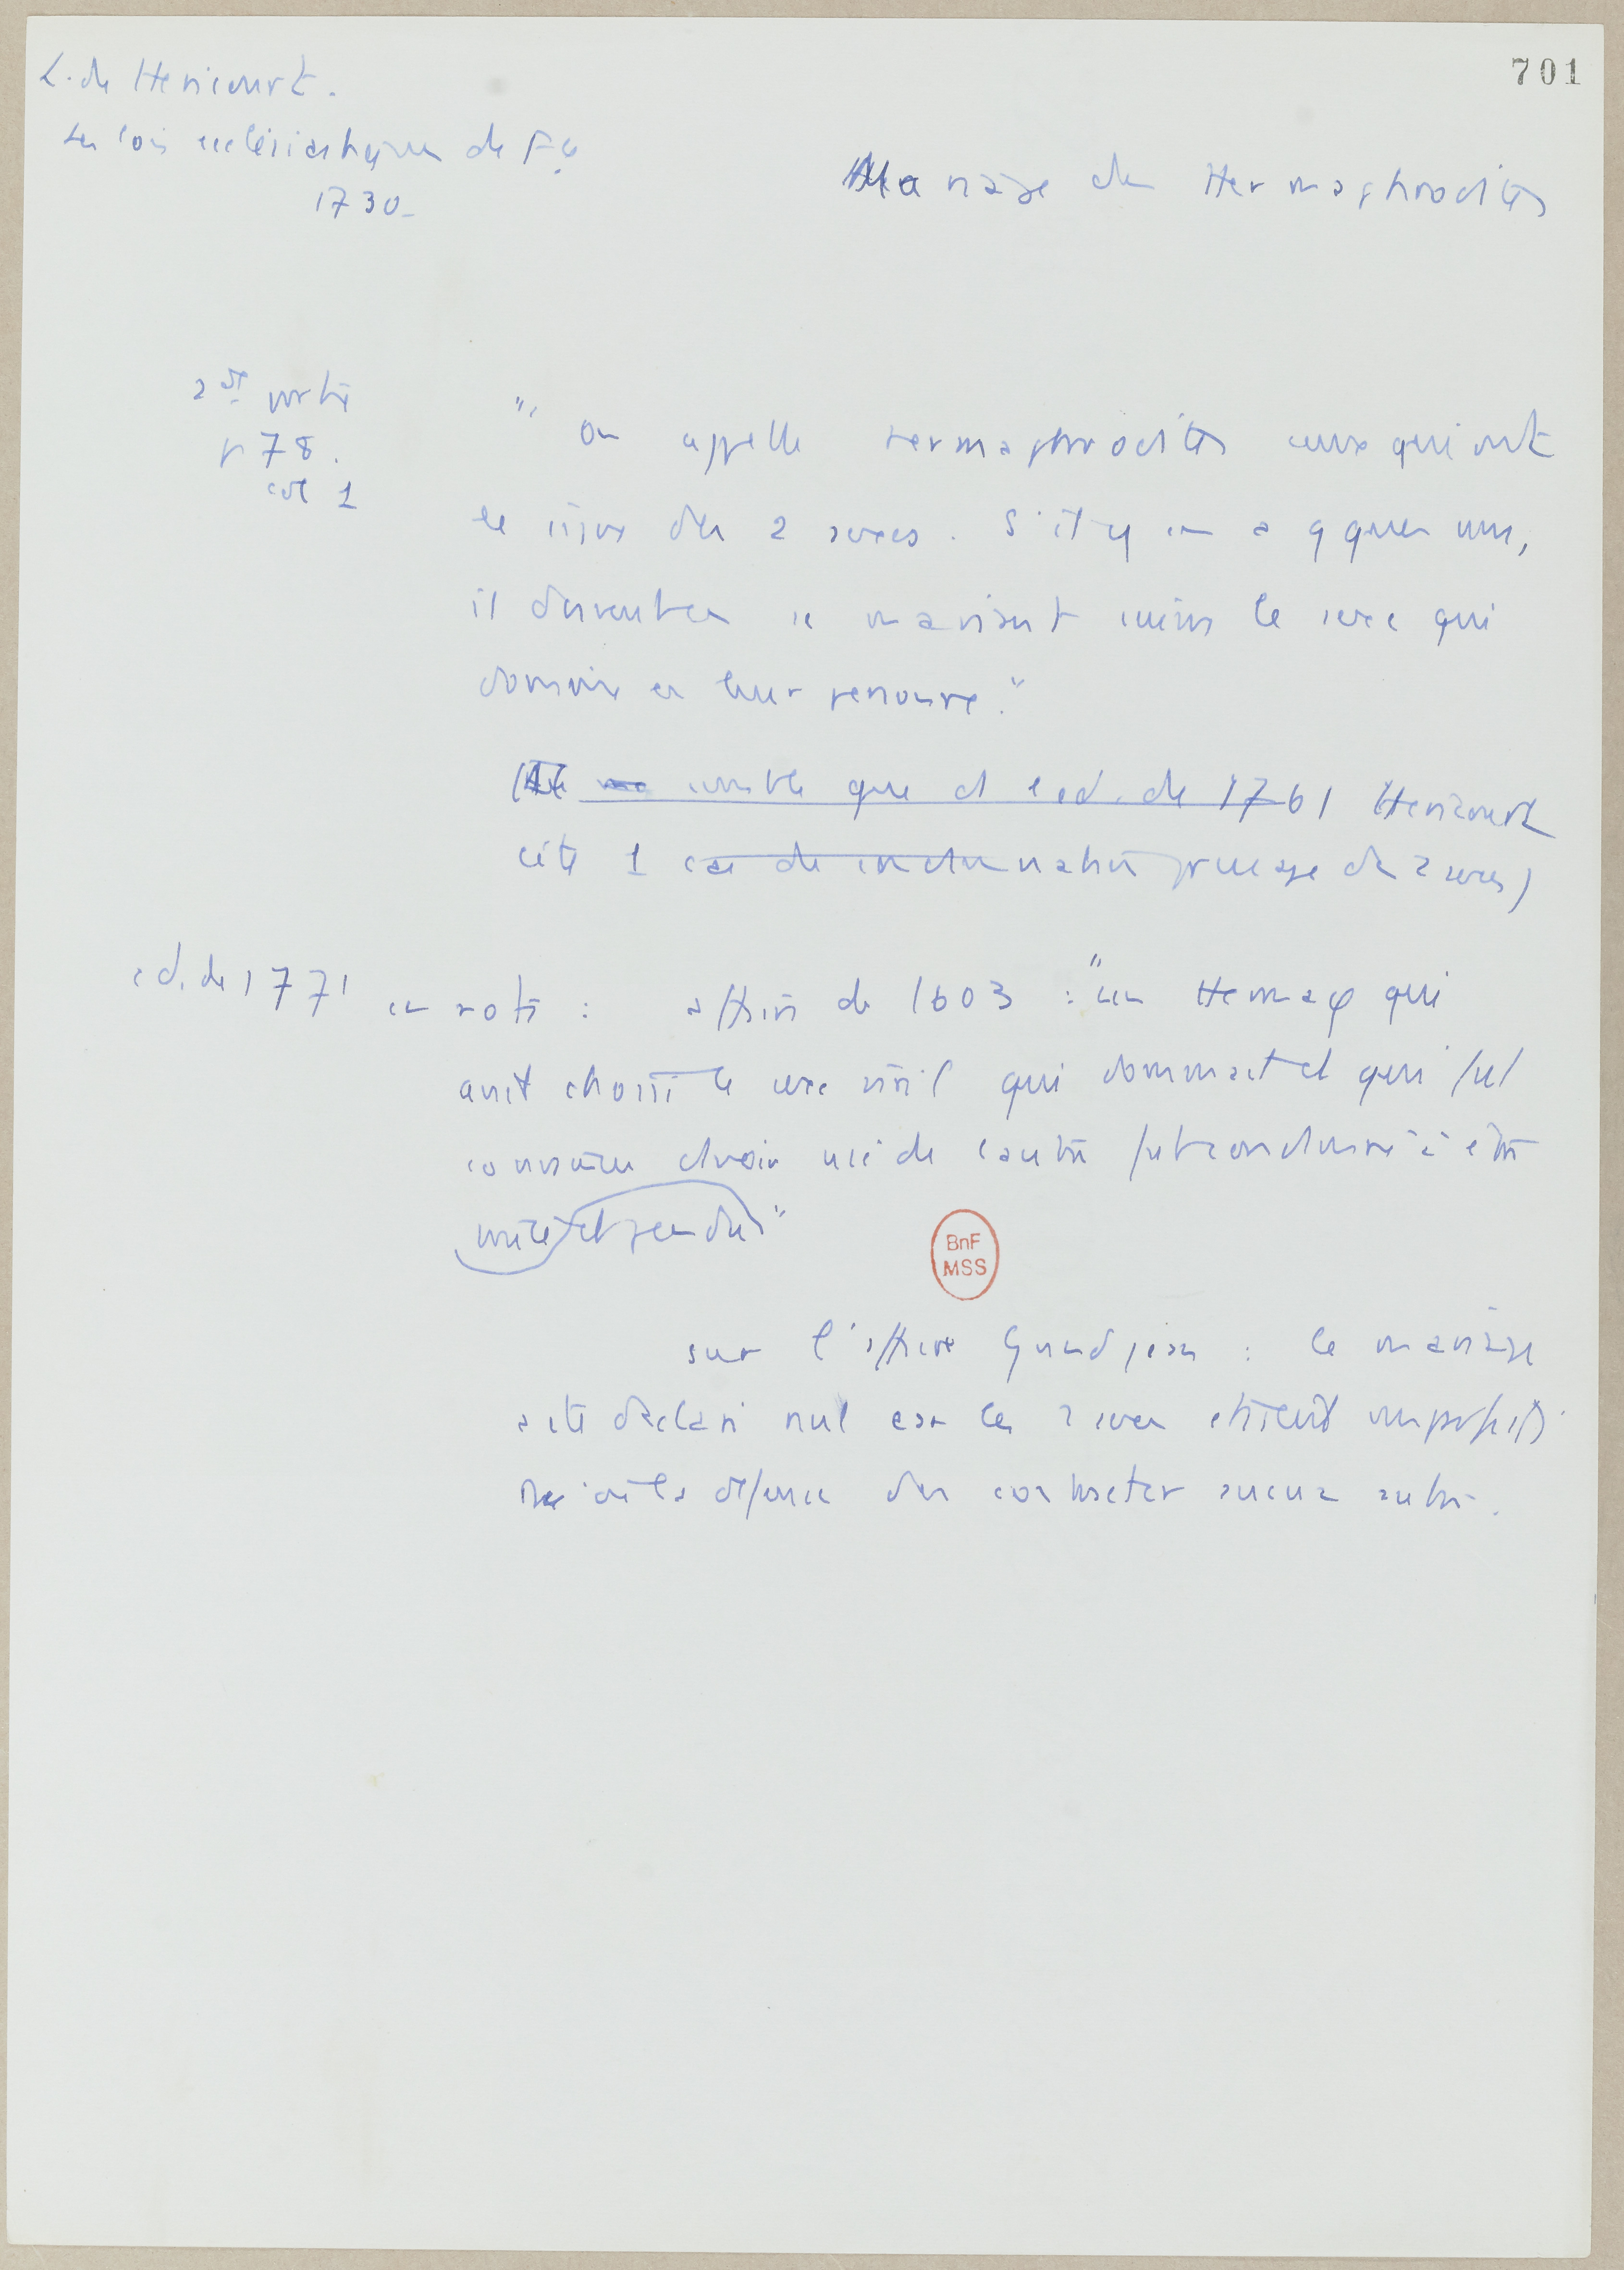 701
L. de Héricourt.
Les lois ecclésiastiques de Fce
1730_
Mariage des Hermaphrodites
2de partie
p 78.
col 1
"On appelle hermaphrodites ceux qui ont
le sexe des 2 sexes. S'il y en a qques uns,
il doivent se mariant suivre le sexe qui
domine en leur personne."
( semble que ds l ed. de 1761 Héricourt
cite 1 cas de condamnation pr usage des 2 sexes)
ed. de 1771 en note : affaire de 1603 : "un Hermaφ qui
avait choisi le sexe viril qui dominait et qui fut
convaincu d'avoir usé de l'autre fut condamné à être
brûlé et pendu"
BnF
MSS
sur l'affaire Grandjean : le mariage
a été déclaré nul car les 2 sexes étaient imparfaits
défense d'en contracter aucun autre.